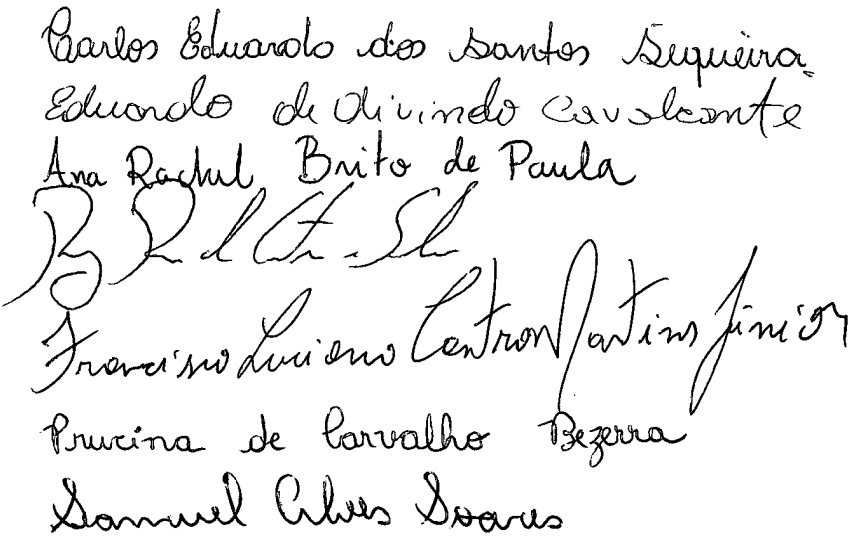 Carlos Eduardo dos Santos Siqueira
Eduardo de Olivindo Cavalcante
Ana Rachel Brito de Paula
Francisco Luciano Castron Martins Júnior
Prucina de Carvalho Bezerra
Samuel Alves Soares